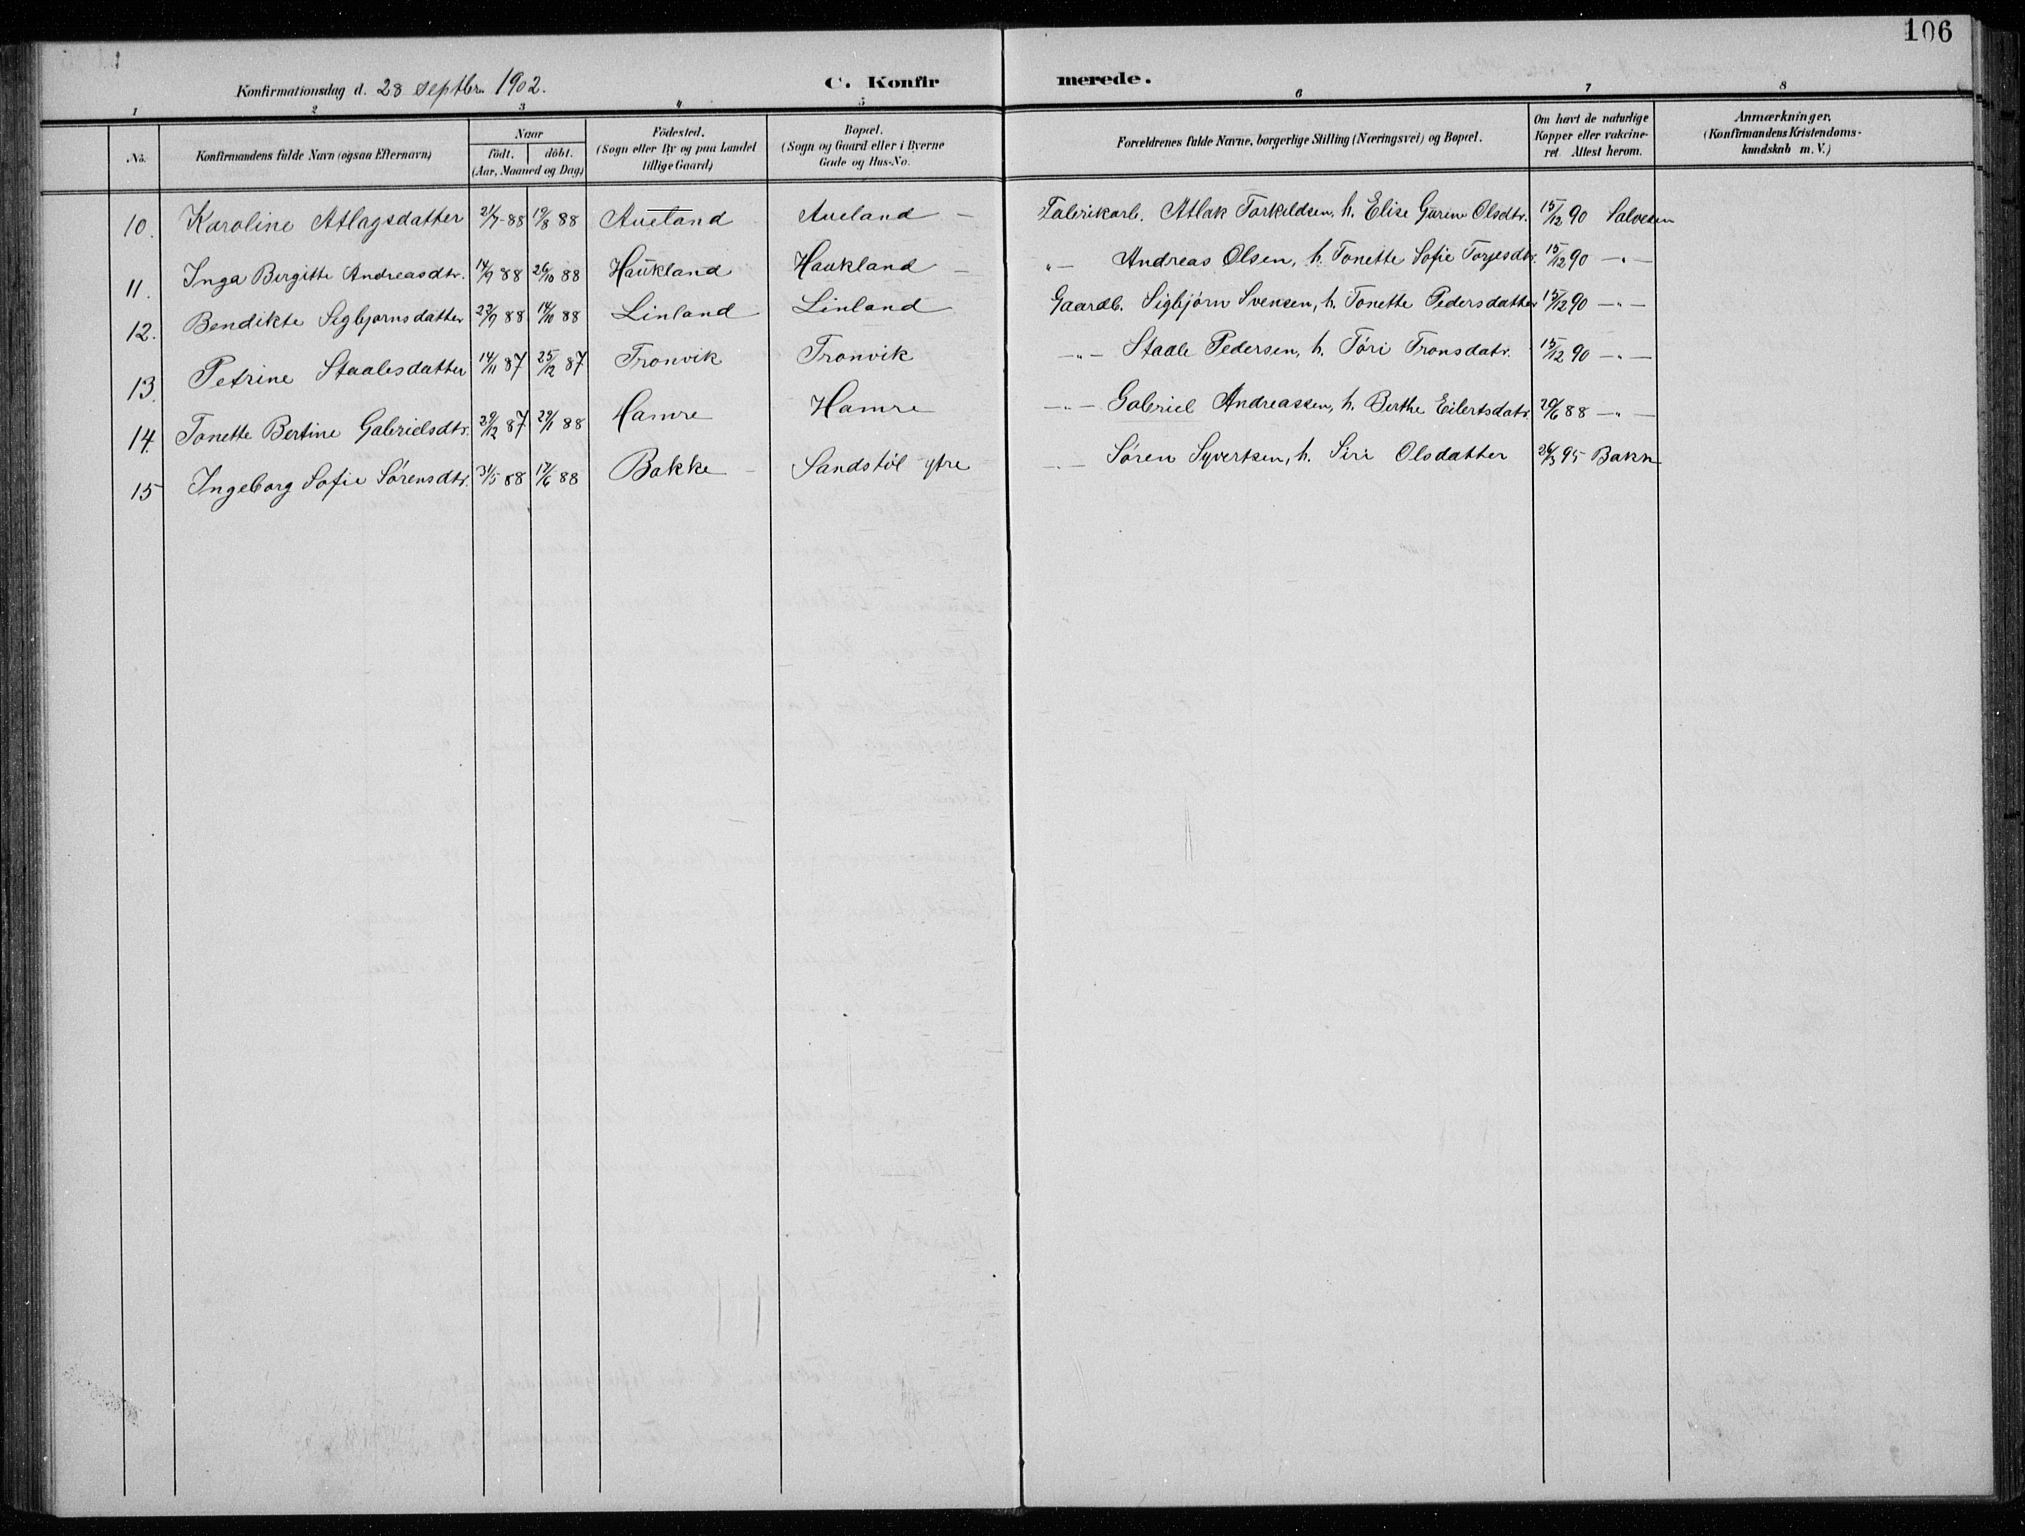 106
Konfirmationsdag d. 28 septbr. 1902. C. Konfirmerede.
1 2 3 4 5 6 7 8
No. Konfirmandens fulde Navn (ogsaa Efternavn) Naar födt. döbt. (Aar, Maaned og Dag) Födested. (Sogn eller By og paa Landet tillige Gaard) Bopæl. (Sogn og Gaard eller i Byerne Gade og Hus-No. Forældrenes fulde Navne, borgerlige Stilling (Næringsvei) og Bopæl. Om havt de naturlige Kopper eller vakcineret. Attest herom. Anmærkninger. (Konfirmandens Kristendomskundskab m. V.)
10. Karoline Atlagsdatter 21/7 88 19/8 88 Aueland Aueland – Fabrikarb. Atlak Torkildsen, h. Elise Gurine Olsdtr. 15/12 90 Salvesen
11. Inga Birgitte Andreasdtr. 14/9 88 26/10 88 Haukland Haukland – „ – Andreas Olsen, h. Tonette Sofie Torjesdtr. 15/12 90 –„–
12. Bendikte Sigbjørnsdatter 23/9 88 14/10 88 Linland Linland Gaardb. Sigbjørn Svensen, h. Tonette Pedersdatter 15/12 90 –„–
13. Petrine Staalesdatter 14/11 87 25/12 87 Tronvik Tronvik –„– Staale Pedersen, h. Tøri Tronsdatr. 15/12 90 –„–
14. Tonette Bertine Gabrielsdtr. 29/12 87 29/1 88 Hamre Hamre –„– Gabriel Andreassen, h. Berthe Eilertsdatr. 20/6 88 –„–
15 Ingeborg Sofie Sørensdtr. 31/5 88 17/6 88 Bakke – Sandstøl ytre –„– Søren Syvertsen, h. Siri Olsdatter 26/3 95 Bakk